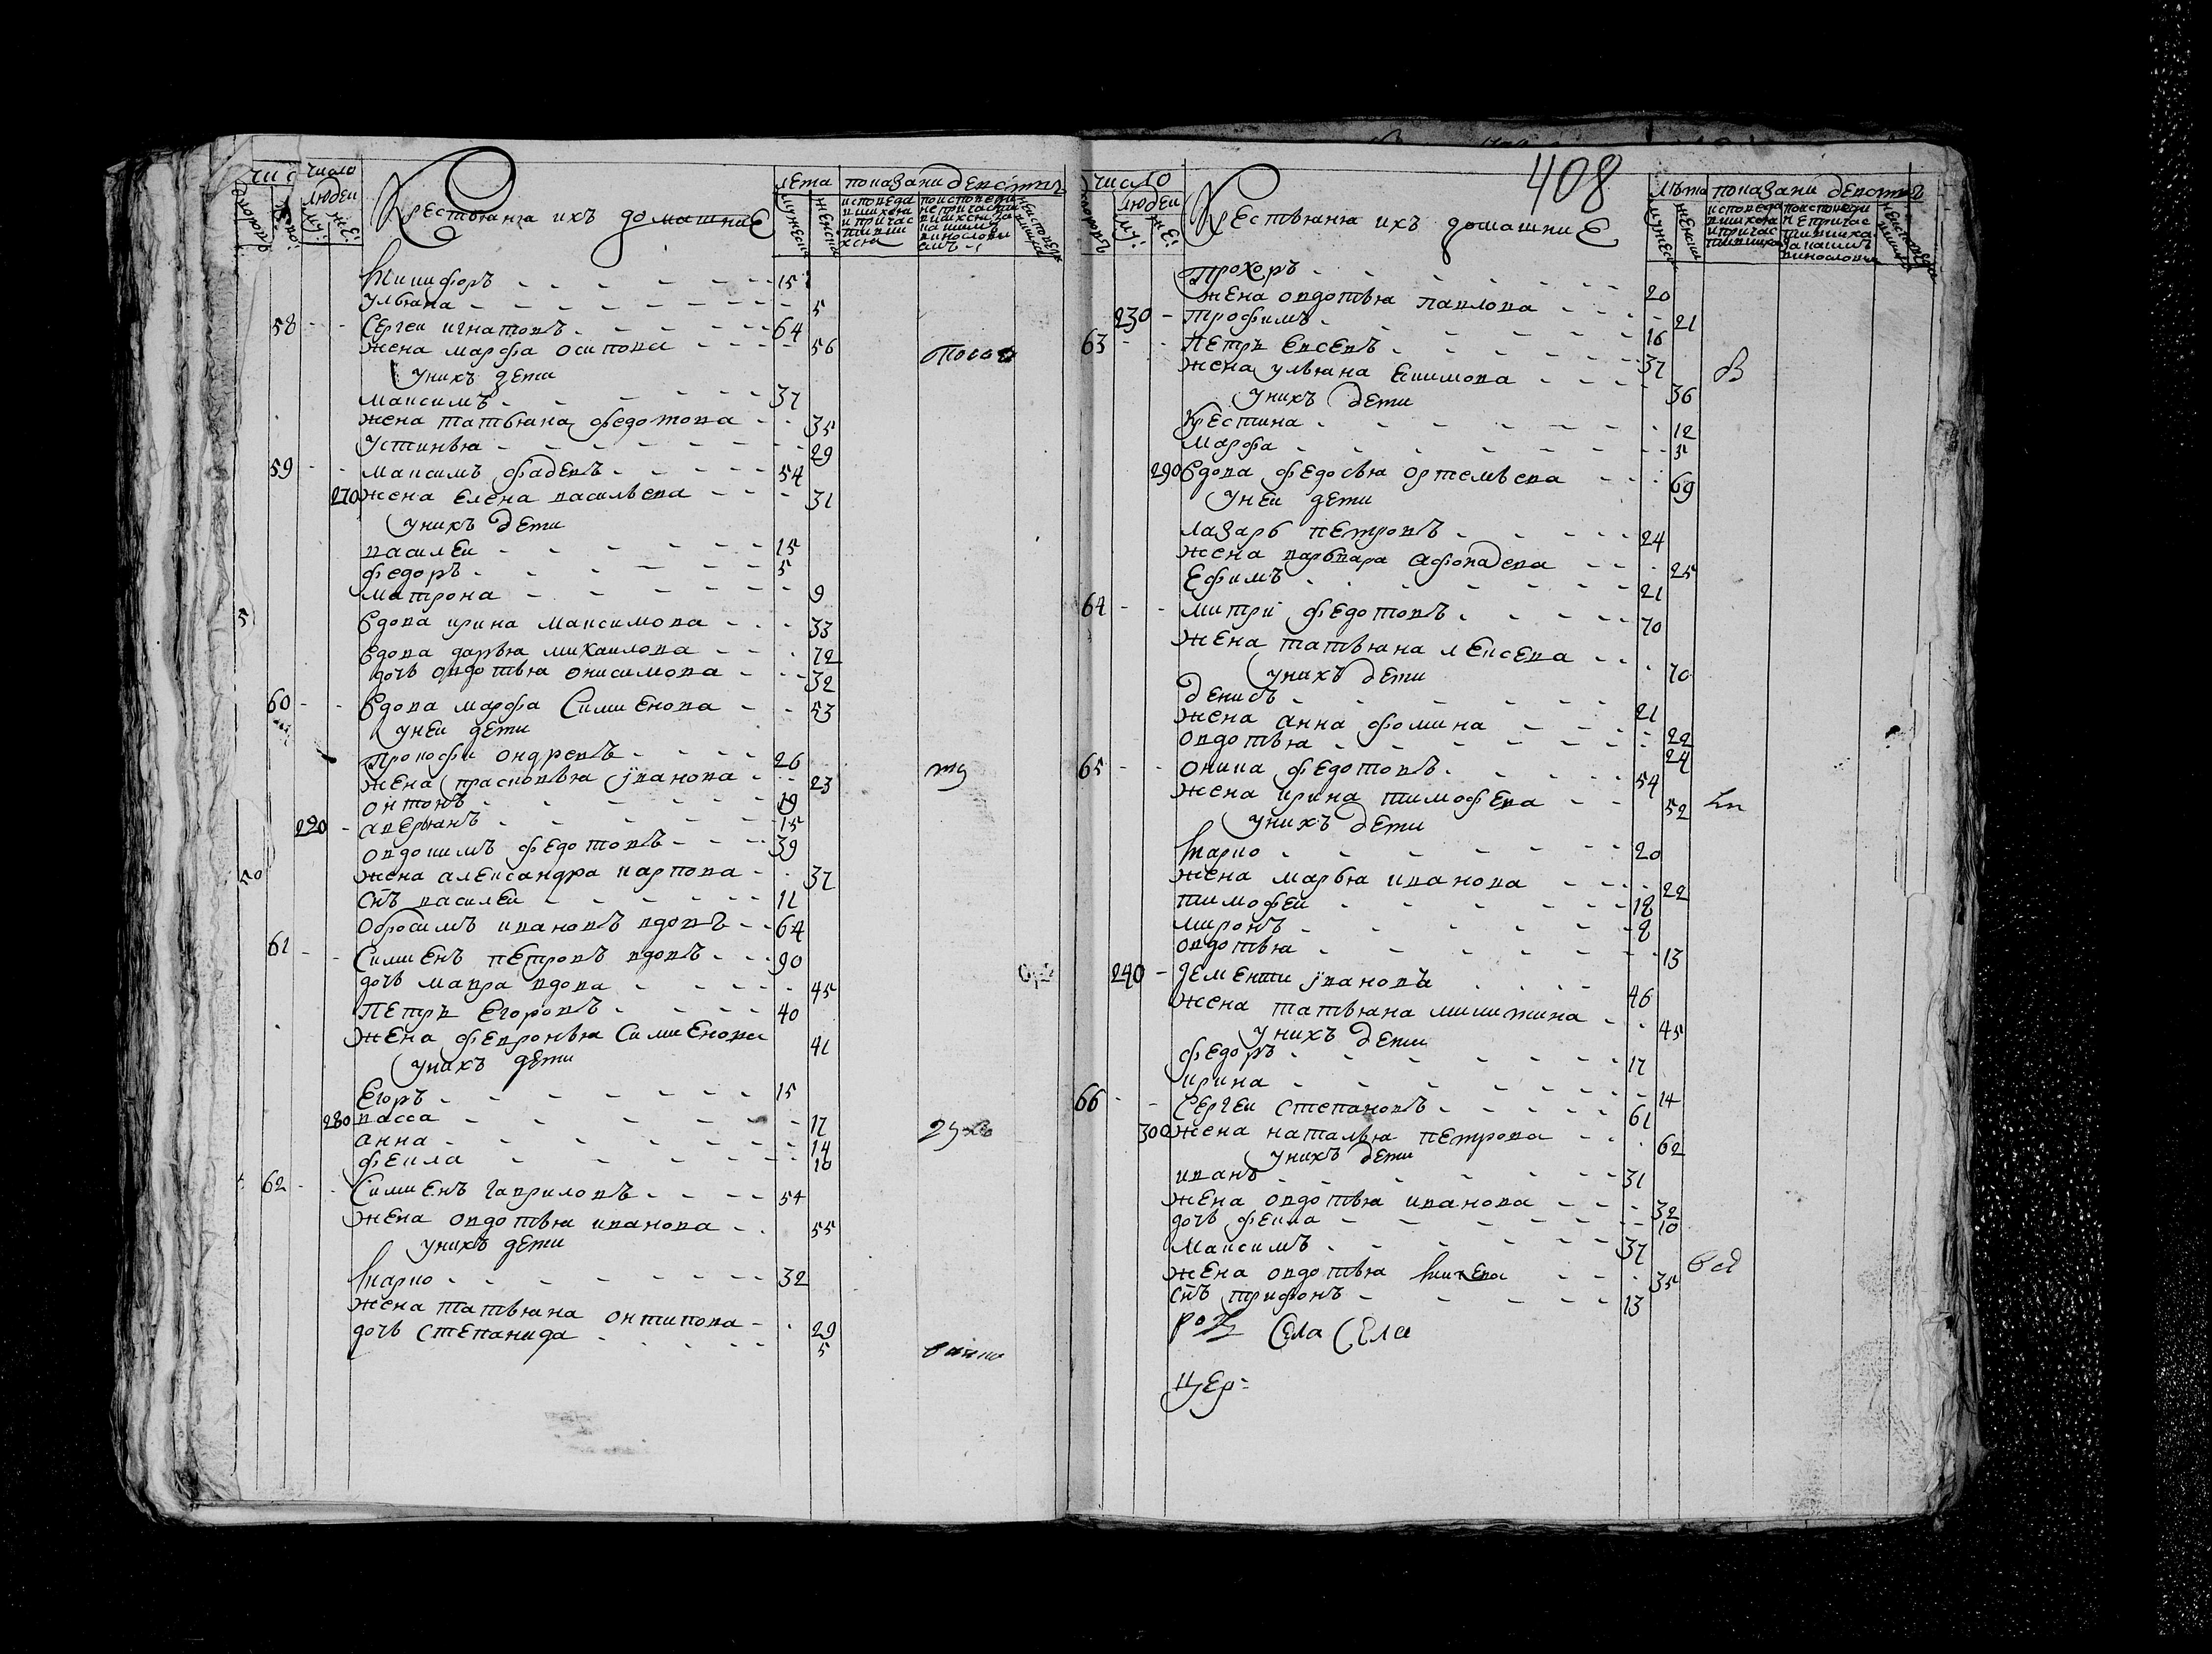 число
люден
му:
же:
Крестьяня ихъ домашние
лета
показани действъ
мужеска
женска
Никифоръ 15
Ульяна 5
58 Сергеи игнатовъ 64
жена марфа осипова 56
уних дети
максимъ 37
жена татьяна федотова 35
Устинья 29
59 максимъ фадевъ 54
270 жена елена васильева 31
унихъ дети
василеи 15
федоръ 5
матрона 9
вдова ирина максимова 33
вдова дарья михаилова 72
дочь овдотья онисимова 32
60 вдова марфа Симиенова 53
унеи дети
Прокофи ондревъ 26
жена прасковья іванова 23
онтонъ 19
220 аверьянъ 15
овдокимъ федотовъ 39
жена александра карпова 37
снъ василеи 11
обросимъ ивановъ вдовъ 64
61 Симиенъ петровъ вдовъ 90
дочь мавра вдова 45
Петръ Егоровъ 40
жена февронья Симиенова 41
унихъ дети
Егоръ 15
280 васса 17
анна 14
фекла 10
62 Симиенъ гавриловъ 54
жена овдотья иванова 55
унихъ дети
карпо 32
жена татьяна онтипова 29
дочь степанида 5
408
число
люден
му:
же:
Крестьяня ихъ домашние
лѣта
показани действъ
Прохоръ 20
жена овдотья павлова 21
230 трофимъ 16
63 Петръ евсевъ 37
жена ульяна екимова 36
унихъ дети
Крестина 12
марфа 5
290 вдова федосья ортемьева 69
унеи дети
лазарь петровъ 24
жена варвара афонасева 25
Ефимъ 21
64 митри федотовъ 70
жена татьяна лексева 70
унихъ дети
денисъ 21
жена анна фомина 22
овдотья 24
65 оника федотовъ 54
жена ирина тимофева 52
унихъ дети
карпо 20
жена марья иванова 22
тимофеи 18
миронъ 8
овдотья 13
240 дементи івановъ 46
жена татьяна микитина 45
унихъ дети
федоръ 17
ирина 14
66 Сергеи степановъ 61
300 жена наталья петрова 62
унихъ дети
иванъ 31
жена овдотья иванова 32
дочь фекла 10
максимъ 37
жена овдотья 35
снъ трифонъ 13
Села Села
цер: